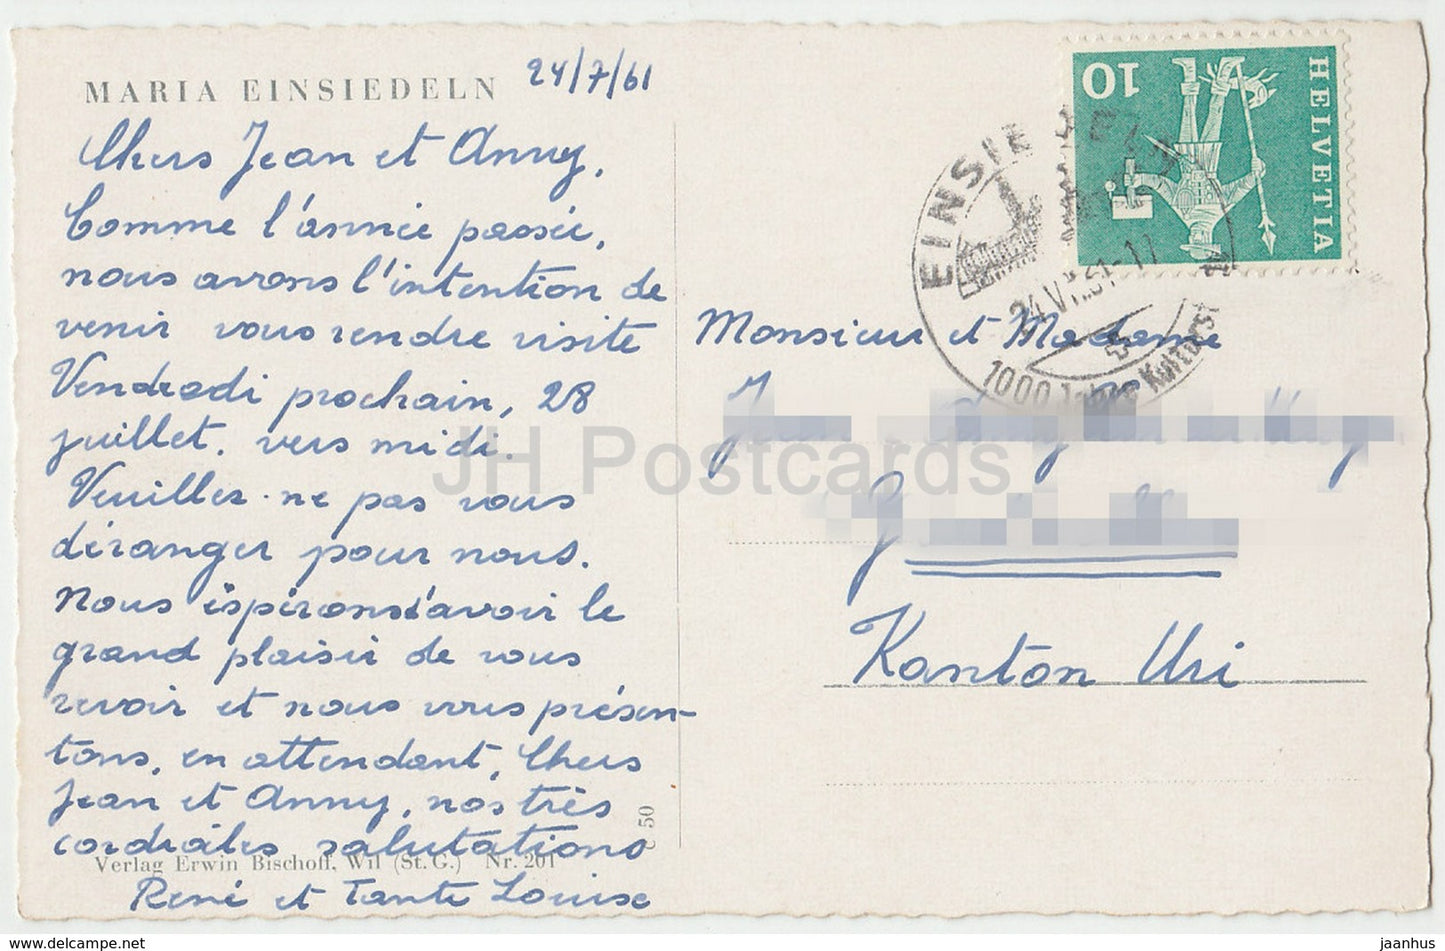 MARIA EINSIEDELN
24/7/61
Chers Jean et Anny,
Comme l'année passée,
nous avons l'intention de
venir vous rendre visite
Vendredi prochain, 28
juillet, vers midi.
Veuillez ne pas vous
déranger pour nous.
Nous espérons d'avoir le
grand plaisir de vous
revoir et nous vous présen-
tons, en attendant, Chers
Jean et Anny, nos très
cordiales salutations
René et Tante Louise
Verlag Erwin Bischoff, Wil (St. G.) Nr. 201
c 50
HELVETIA
10
EINSIEDELN
24.VII.61-17
1000 Jahre Kultur
Monsieur et Madame
Kanton Uri
JH Postcards
www.delcampe.net
jaanhus